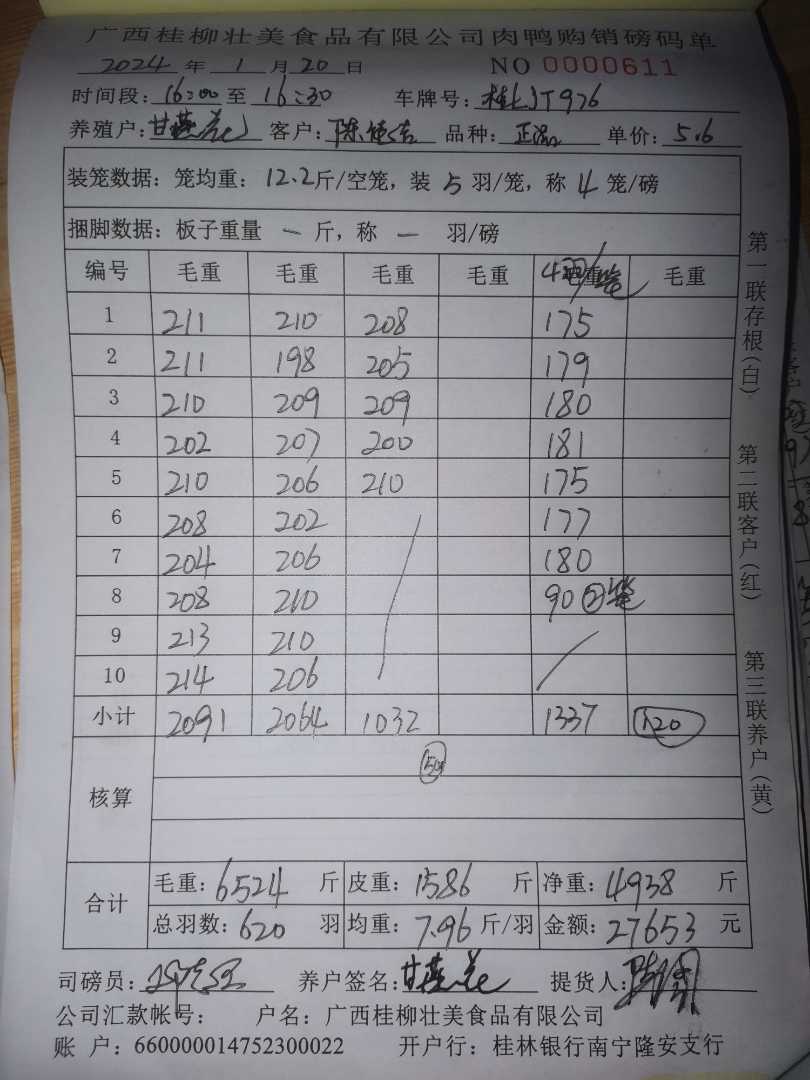 广西桂柳壮美食品有限公司肉鸭购销磅码单
2024 年 1 月 20 日 NO 0000611
时间段: 16:00 至 16:30 车牌号: 桂 JT976
养殖户: 甘燕 客户: 陈 品种: 正 单价: 5.6
装笼数据: 笼均重: 12.2斤/空笼, 装 5 羽/笼, 称 4 笼/磅
捆脚数据: 板子重量 一 斤, 称 一 羽/磅
编号 毛重 毛重 毛重 毛重 4羽/笼 毛重 毛重
1 211 210 208 175
2 211 198 205 179
3 210 209 209 180
4 202 207 200 181
5 210 206 210 175
6 208 202 177
7 204 206 180
8 208 210 90 ②笼
9 213 210
10 214 206
小计 2091 2064 1032 1337 120
核算
合计 毛重: 6524 斤 皮重: 1586 斤 净重: 4938 斤
总羽数: 620 羽 均重: 7.96 斤/羽 金额: 27653 元
司磅员: 养户签名: 甘燕 提货人:
公司汇款帐号: 户名: 广西桂柳壮美食品有限公司
账 户: 660000014752300022 开户行: 桂林银行南宁隆安支行
第一联存根(白)
第二联客户(红)
第三联养户(黄)